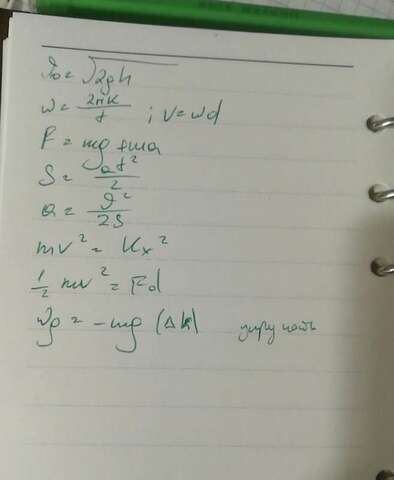 ϑ₀ = √2gh
ω = 2πk/t ; v = ωd
F = mg + ma
S = at²/2
a = ϑ²/2S
mv² = Kx²
1/2 mv² = Fd
Wg = -mg (Δh)